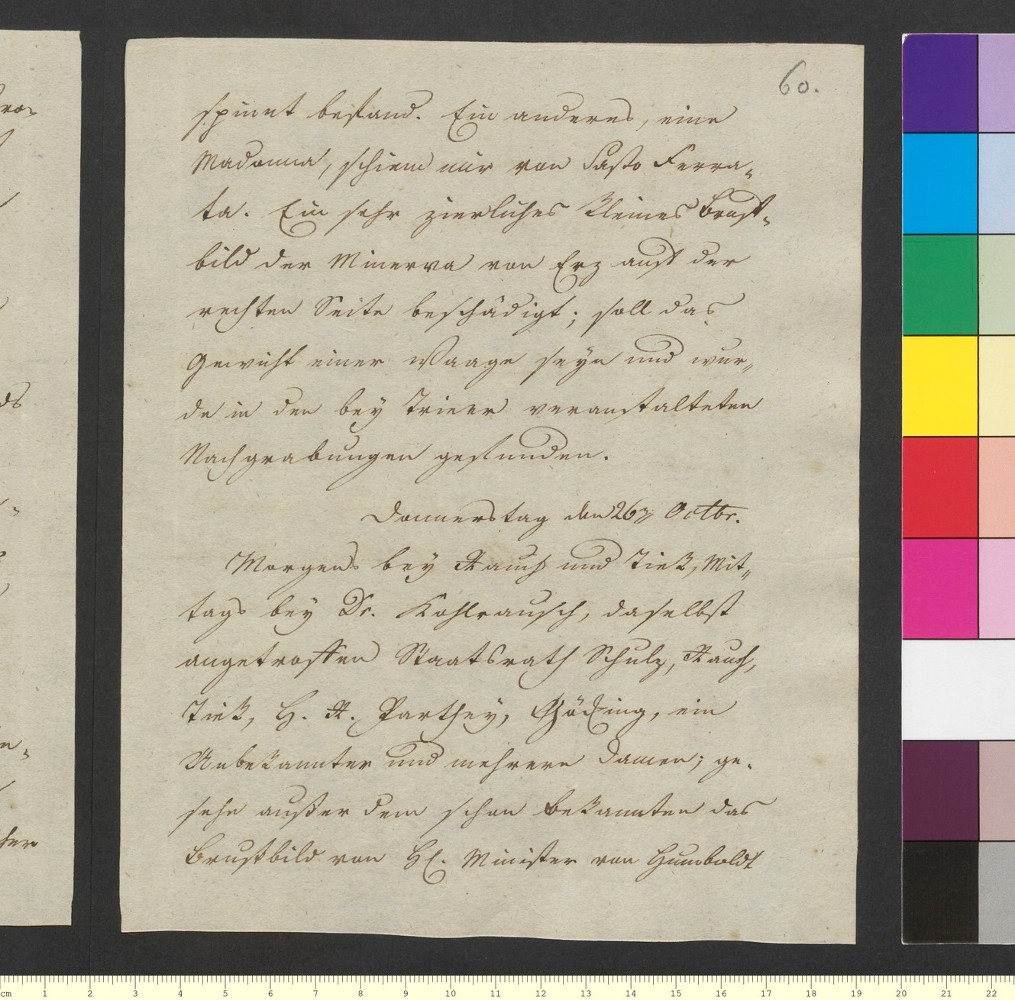 60.
spinnt bestand. Ein anderes, eine
Madonna, schien mir von Sasso Ferra-
ta. Ein sehr zierliches kleines Brust-
bild der Minerva von Erz auf der
rechten Seite beschädigt; soll das
Gewicht einer Waage seyn und wur-
de in den bey Trier veranstalteten
Nachgrabungen gefunden.
Donnerstag den 26n Octbr.
Morgens bey Rauch und Tiek, Mit-
tags bey Dr. Kohlrausch, daselbst
angetroffen Staatsrath Schulz, Rauch,
Tiek, H. R. Parthey, ein
Unbekannter und mehrere Damen; ge-
sehn außer dem schon bekannten das
Brustbild von H. Minister von Humboldt